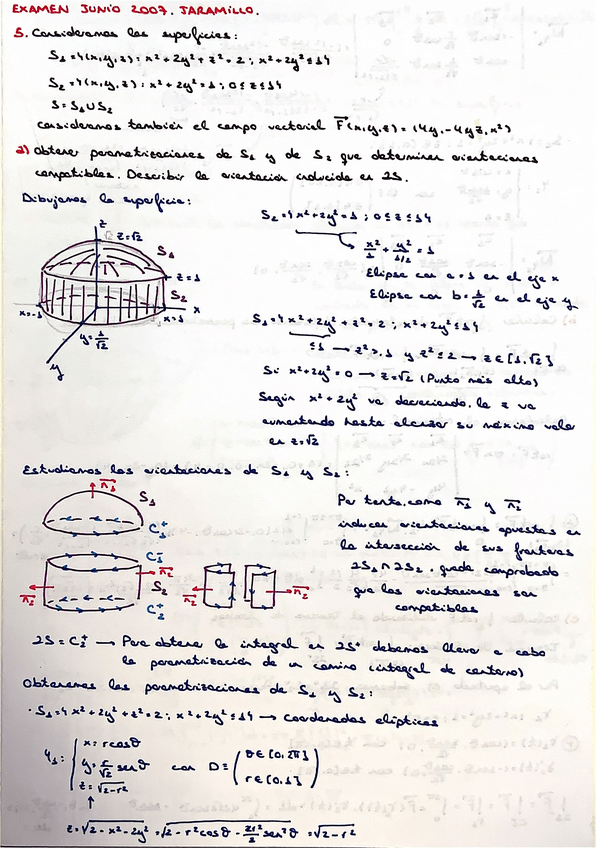 EXAMEN JUNIO 2007. JARAMILLO.
5. Consideramos las superficies:
S₁ = {(x,y,z): x²+2y²+z²=2; x²+2y²≤1}
S₂ = {(x,y,z): x²+2y²=1; 0≤z≤1}
S = S₁∪S₂
consideramos también el campo vectorial F⃗(x,y,z) = (4y, -4yz, x²)
a) Obtener parametrizaciones de S₁ y de S₂ que determinen orientaciones
compatibles. Describir la orientación inducida en ∂S.
Dibujamos la superficie:
S₂ = {x²+2y²=1; 0≤z≤1}
x²/1 + y²/1/2 = 1
Elipse con a=1 en el eje x
Elipse con b=1/√2 en el eje y
z
√2 z=√2
S₁
z=1
S₂
x=-1
x=1
x
y=1/√2
y
S₁ = {x²+2y²+z²=2; x²+2y²≤1}
≤1 → z²≥1 y z²≤2 → z∈[1,√2]
Si x²+2y²=0 → z=√2 (Punto más alto)
Según x²+2y² va decreciendo, la z va
aumentando hasta alcanzar su máximo valor
en z=√2
Estudiamos las orientaciones de S₁ y S₂:
n⃗₁
S₁
C₁⁺
C₁⁻
n⃗₂
S₂
n⃗₂
C₂⁺
n⃗₂
n⃗₂
Por tanto, como n⃗₁ y n⃗₂
inducen orientaciones opuestas en
la intersección de sus fronteras
∂S₁∩∂S₂, queda comprobado
que las orientaciones son
compatibles
∂S = C₂⁺ → Para obtener la integral en ∂S⁺ debemos llevar a cabo
la parametrización de un camino (integral de contorno)
Obtenemos las parametrizaciones de S₁ y S₂:
· S₁ = {x²+2y²+z²=2; x²+2y²≤1} → Coordenadas elípticas
φ₁: { x=rcosθ
y=r/√2 senθ con D = (θ∈[0,2π]
z=√2-r² r∈[0,1])
z=√2-x²-2y² = √2-r²cos²θ-2r²/2 sen²θ = √2-r²